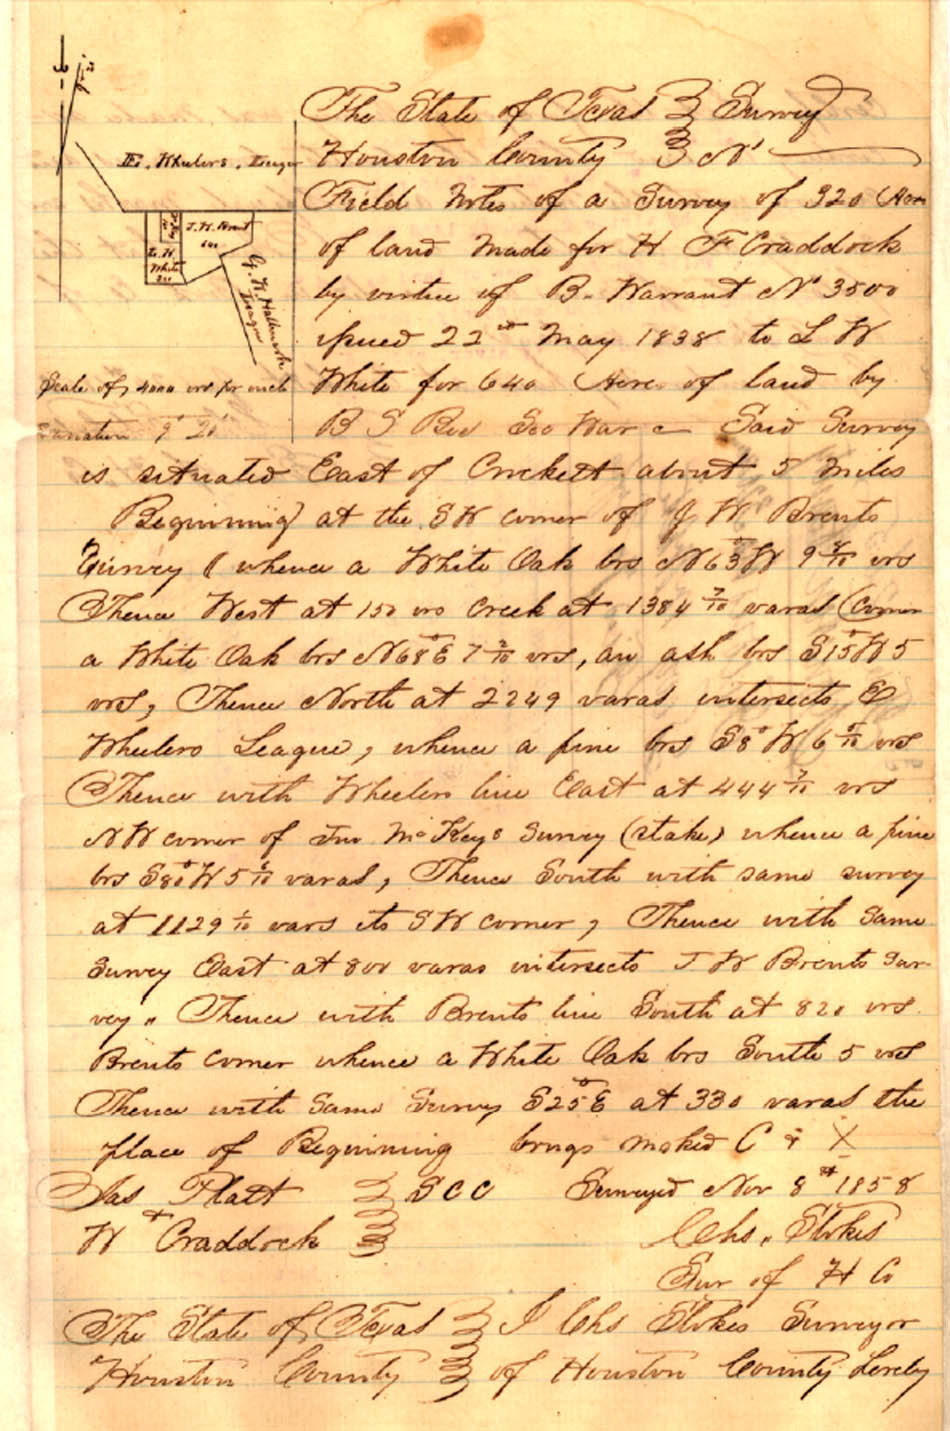 E. Wheelers. League
J. W. Brent
600
L. W.
White
320
G. W. Hallmark
League
Scale of, 4000 vrs pr inch
9° 20'
The State of Texas } Survey
Houston County } No
Field Notes of a Survey of 320 Acres
of land made for H F Craddock
by virtue of B. Warrant No 3500
issued 22nd May 1838 to L W
White for 640 Acres of land by
B S Bee Sec War Said Survey
is situated East of Crockett about 5 miles
Beginning at the SW corner of J W. Brents
Survey whence a White Oak brs N63°W 9 /10 vrs
Thence West at 150 vrs Creek at 1384 7/10 varas Corner
a White Oak brs N68°E 7 2/10 vrs, an ash brs S15°W 5
vrs, Thence North at 2249 varas intersects E
Wheelers League, whence a pine brs S8°W 6 /10 vrs
Thence with Wheelers line East at 444 7/10 vrs
NW corner of Jno McKeys Survey (stake) whence a pine
brs S80°W 5 /10 varas, Thence South with same survey
at 1129 /10 vars its SW corner, Thence with Same
Survey East at 800 varas intersects J W Brents Sur-
vey. Thence with Brents line South at 820 vrs.
Brents corner whence a White Oak brs South 5 vrs
Thence with Same Survey S25°E at 330 varas the
place of Beginning brngs marked C & X
Jas Platt } S C C Surveyed Nov 8th 1858
W Craddock } Chs. Stokes
Sur of H Co
The State of Texas } I Chs Stokes Surveyor
Houston County } of Houston County hereby